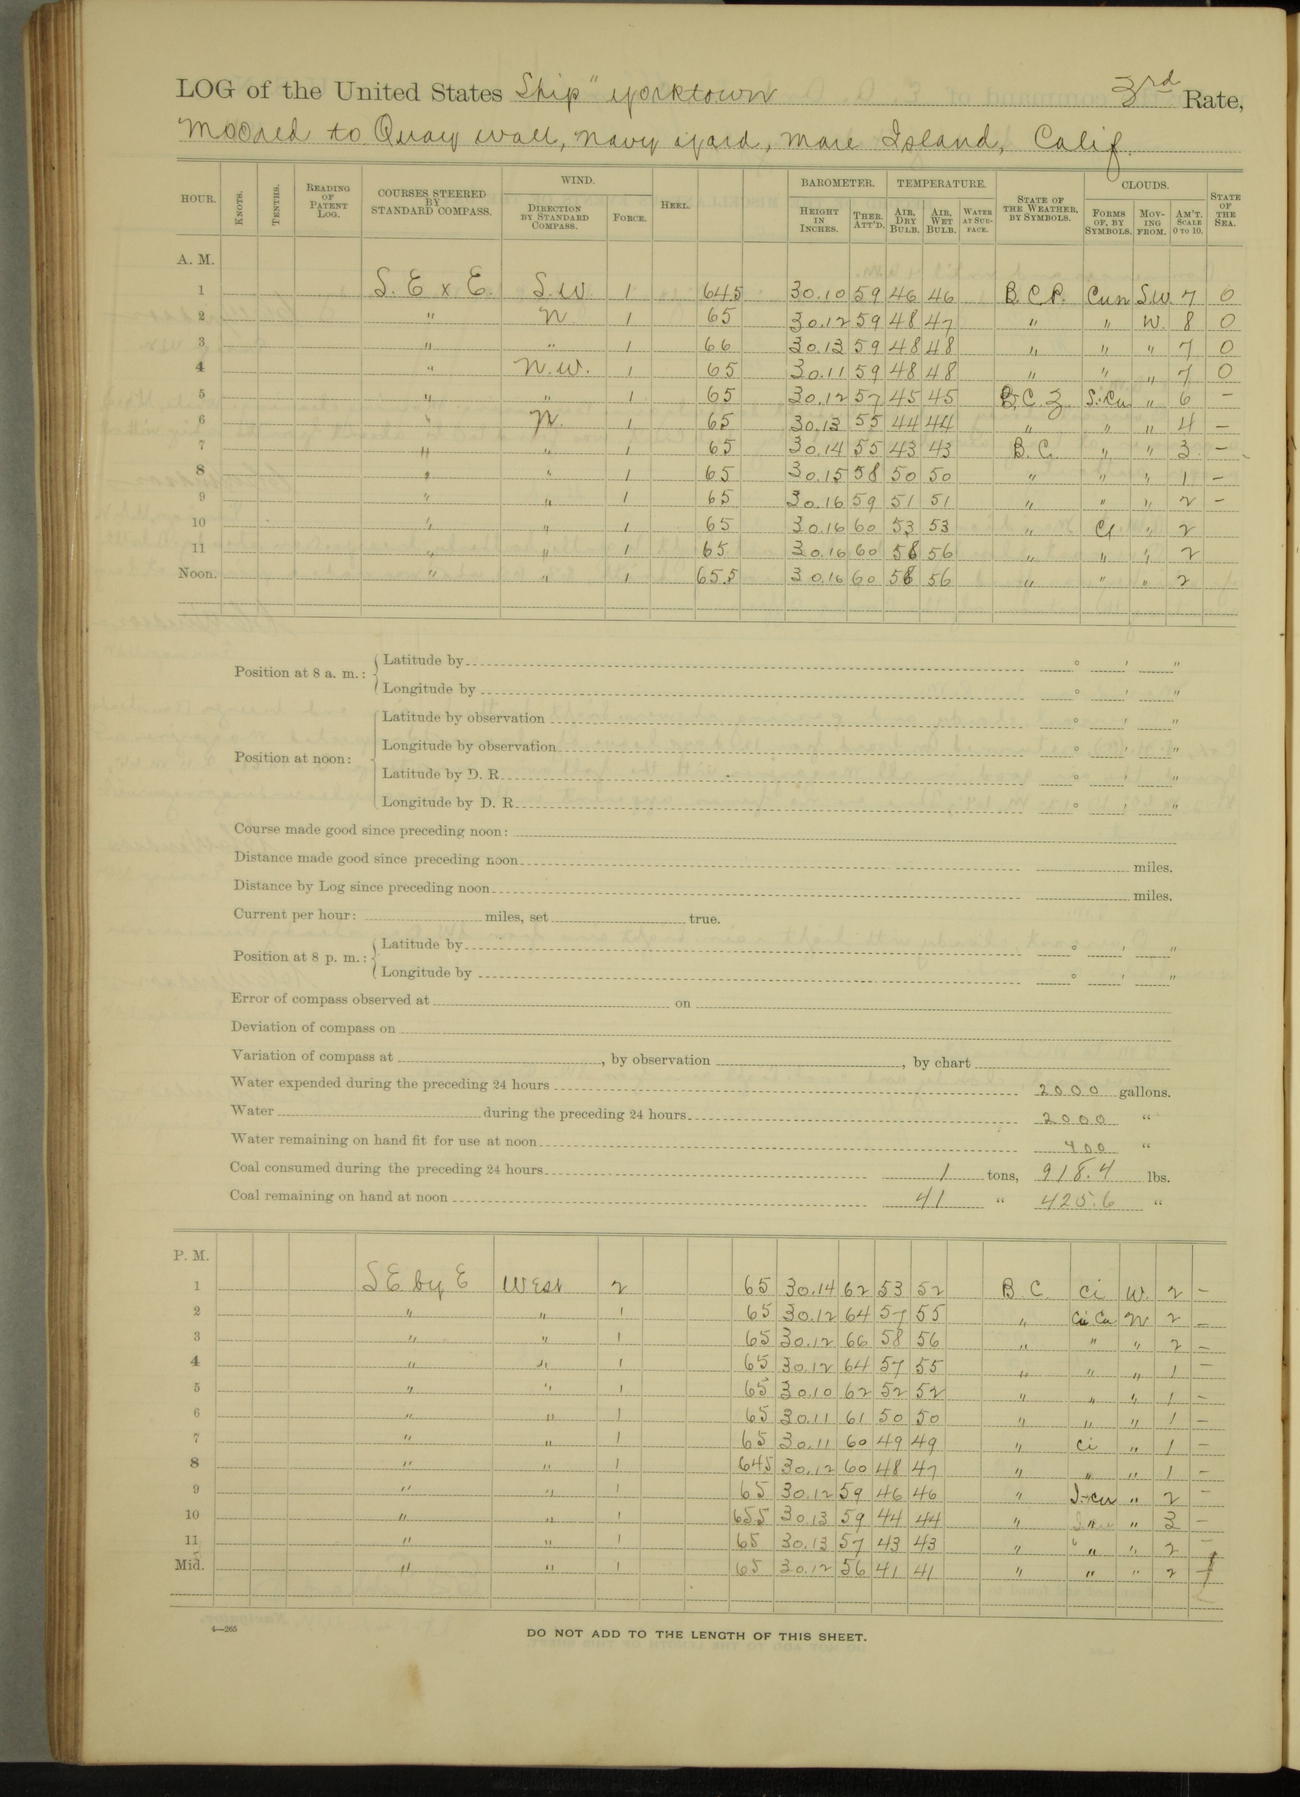 LOG of the United States Ship "Yorktown 3rd Rate,
Moored to Quay wall, Navy Yard, Mare Island, Calif.
HOUR. KNOTS. TENTHS. READING OF PATENT LOG. COURSES STEERED BY STANDARD COMPASS. WIND. DIRECTION BY STANDARD COMPASS. FORCE. HEEL. BAROMETER. HEIGHT IN INCHES. THER. ATT'D. TEMPERATURE. AIR, DRY BULB. AIR, WET BULB. WATER AT SURFACE. STATE OF THE WEATHER, BY SYMBOLS. CLOUDS. FORMS OF, BY SYMBOLS. MOVING FROM. AM'T. SCALE 0 TO 10. STATE OF THE SEA.
A. M.
1 S. E x E. S.W. 1 645 30.10 59 46 46 B. C. P. Cun S.W 7 0
2 " N 1 65 30.12 59 48 47 " " W. 8 0
3 " " 1 66 30.13 59 48 48 " " " 7 0
4 " N.W. 1 65 30.11 59 48 48 " " " 7 0
5 " " 1 65 30.12 57 45 45 B. C. Z. S-Cu " 6 -
6 " N. 1 65 30.13 55 44 44 " " " 4 -
7 " " 1 65 30.14 55 43 43 B. C. " " 3 -
8 " " 1 65 30.15 58 50 50 " " " 1 -
9 " " 1 65 30.16 59 51 51 " " " 2 -
10 " " 1 65 30.16 60 53 53 " Ci " 2
11 " " 1 65 30.16 60 58 56 " " " 2
Noon. " " 1 655 30.16 60 58 56 " " " 2
Position at 8 a. m.: Latitude by ° ' "
Longitude by ° ' "
Position at noon: Latitude by observation ° ' "
Longitude by observation ° ' "
Latitude by D. R. ° ' "
Longitude by D. R. ° ' "
Course made good since preceding noon:
Distance made good since preceding noon miles.
Distance by Log since preceding noon miles.
Current per hour: miles, set true.
Position at 8 p. m.: Latitude by ° ' "
Longitude by ° ' "
Error of compass observed at on
Deviation of compass on
Variation of compass at , by observation , by chart
Water expended during the preceding 24 hours 2000 gallons.
Water during the preceding 24 hours 2000 "
Water remaining on hand fit for use at noon 400 "
Coal consumed during the preceding 24 hours 1 tons, 918.4 lbs.
Coal remaining on hand at noon 41 " 425.6 "
P. M.
1 SE by E West 2 65 30.14 62 53 52 B C. Ci W. 2 -
2 " " 1 65 30.12 64 57 55 " Ci Cu N 2 -
3 " " 1 65 30.12 66 58 56 " " " 2 -
4 " " 1 65 30.12 64 57 55 " " " 1 -
5 " " 1 65 30.10 62 52 52 " " " 1 -
6 " " 1 65 30.11 61 50 50 " " " 1 -
7 " " 1 65 30.11 60 49 49 " Ci " 1 -
8 " " 1 645 30.12 60 48 47 " " " 1 -
9 " " 1 65 30.12 59 46 46 " S-cu " 2 -
10 " " 1 655 30.13 59 44 44 " " " 3 -
11 " " 1 65 30.13 57 43 43 " " " 2 -
Mid. " " 1 65 30.12 56 41 41 " " " 2 -
4—265
DO NOT ADD TO THE LENGTH OF THIS SHEET.